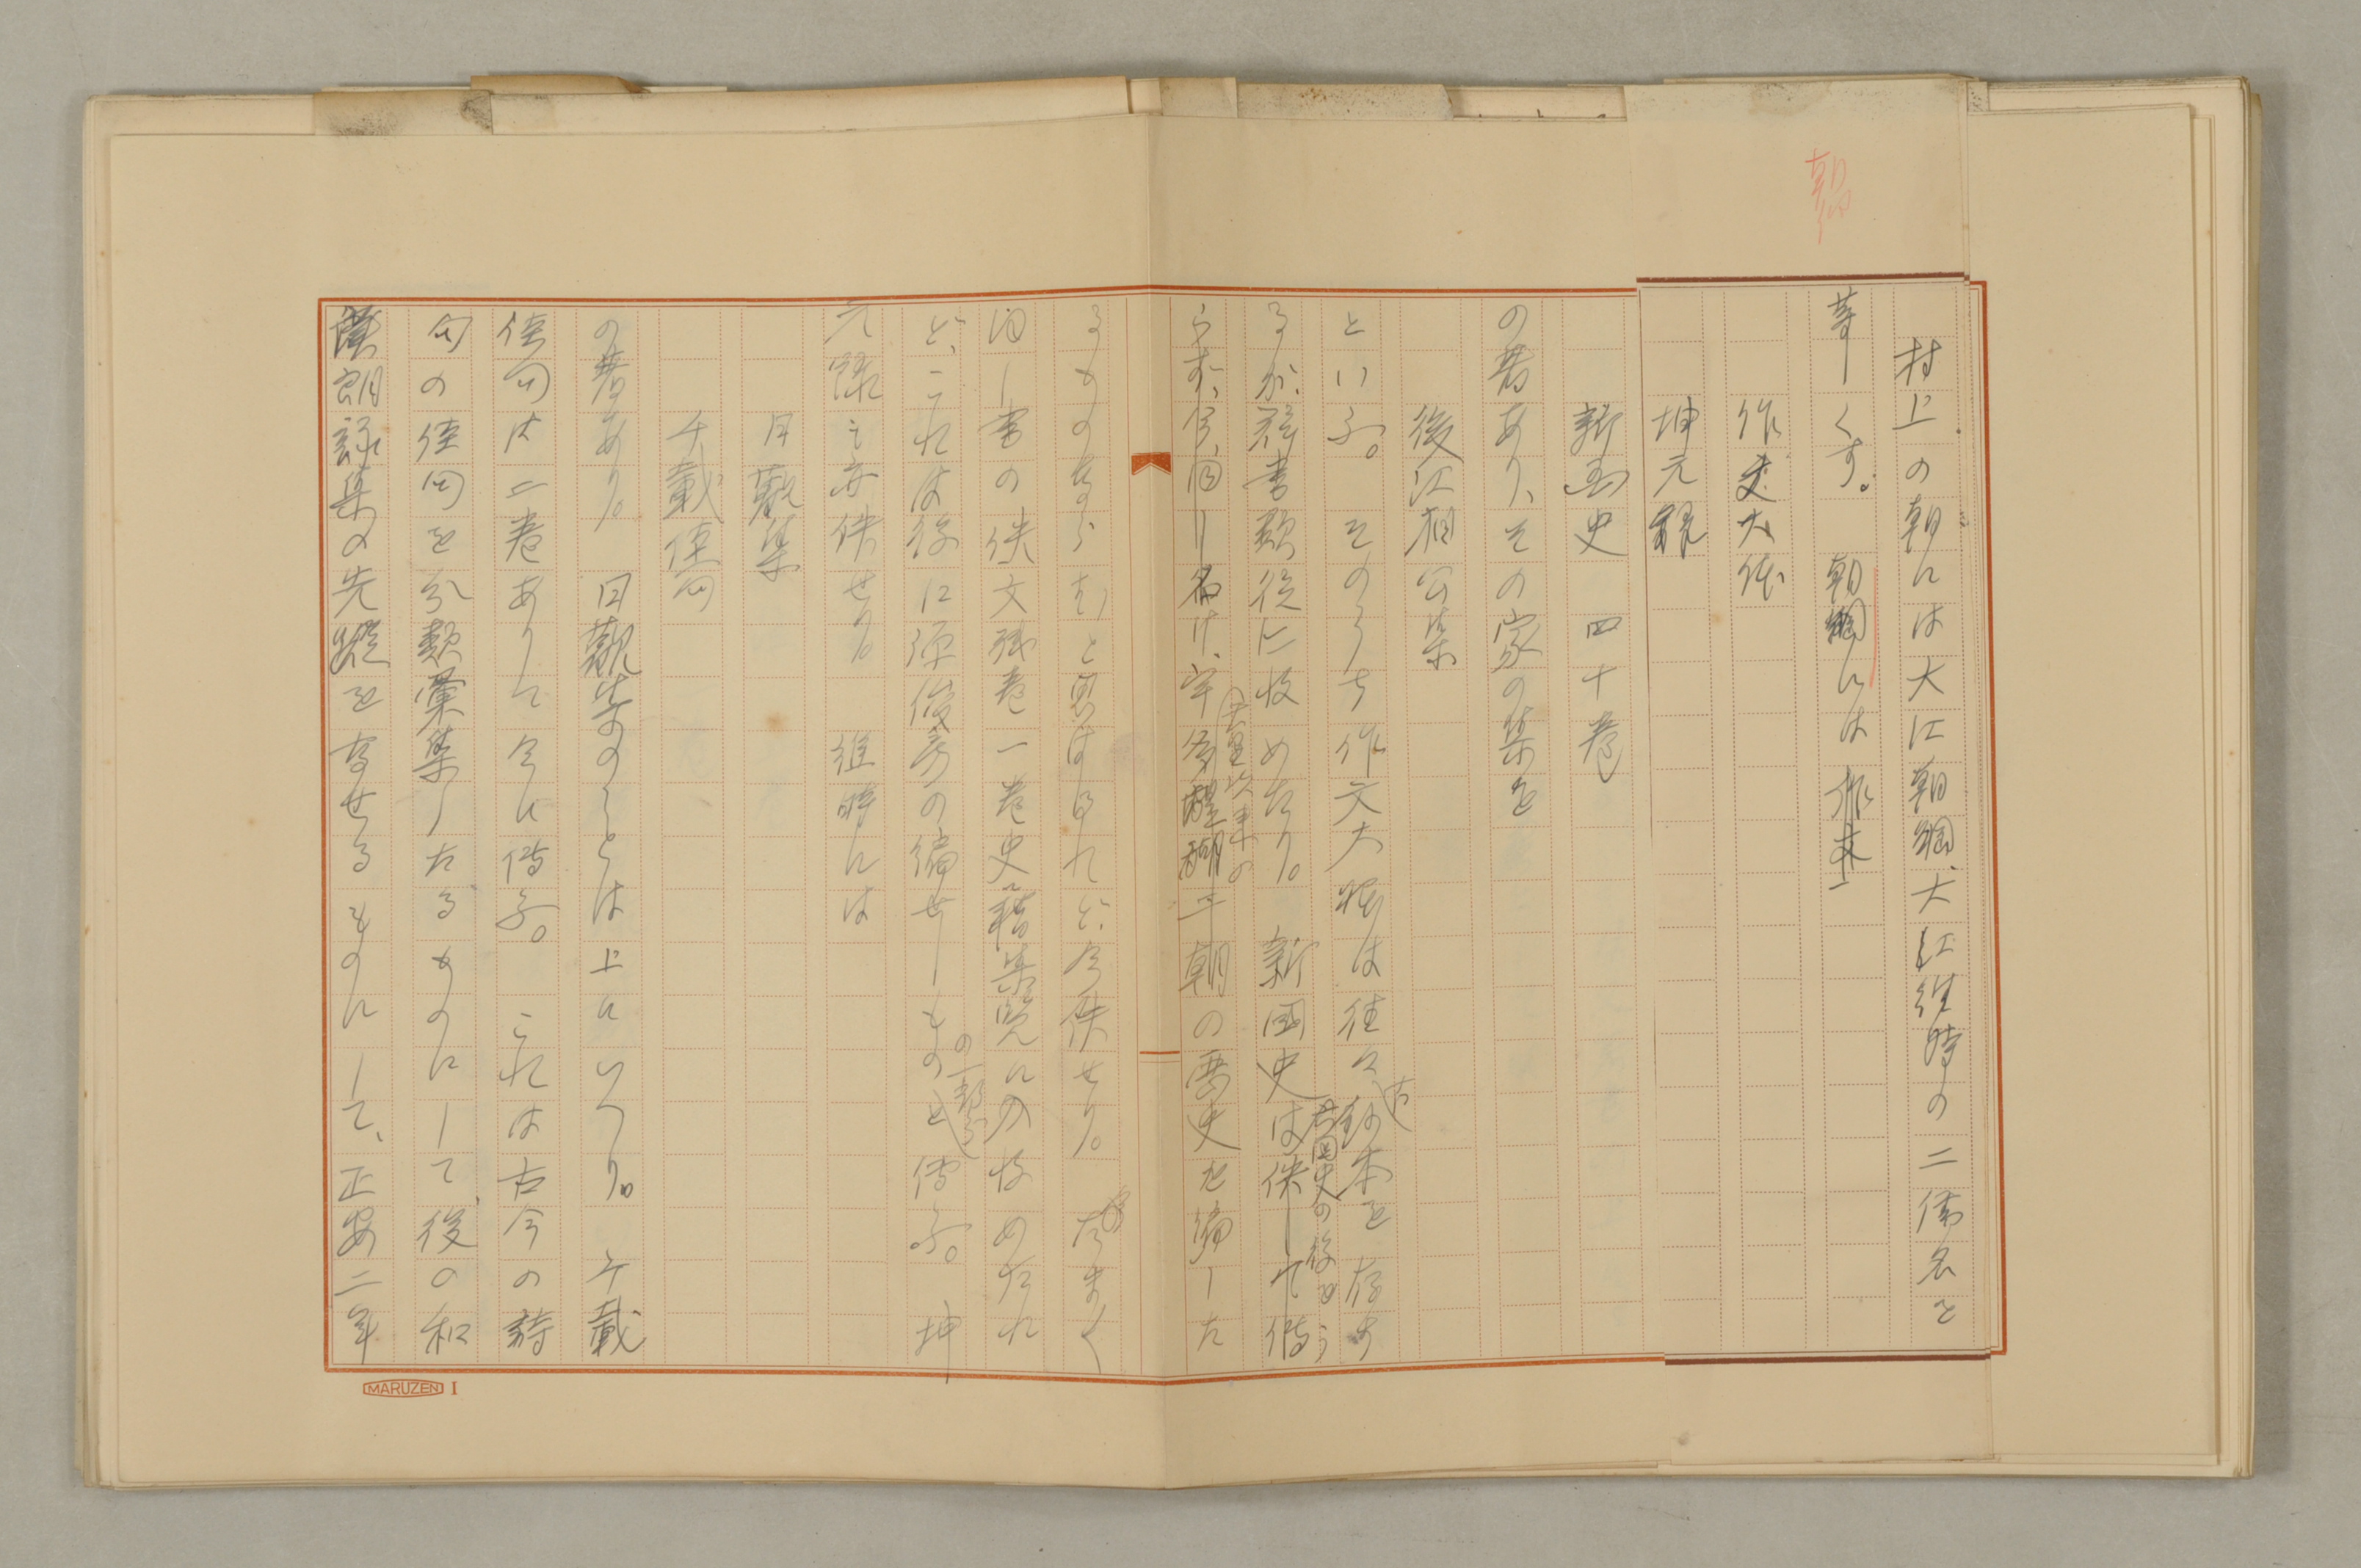 朝綱
村上の朝には大江朝綱、大江維時の二儒名を
草しくす。 朝綱には作文
作文大体
坤元録
新国史 四十巻
の著あり、その家の集を
後江相公集
といふ。 そのうち作文大体は往々古鈔本を存す
るが、群書類従に收めたり。 新国史は佚して傳
六国史の後をう
らず、今、
名け、宇多醍醐二朝の歴史を編した
るものならむと思はるれど、今佚せり。 たまく
同じ書の佚文残巻一巻史籍集覧に收めたれ
ど、これは後に源俊房の編せしもの
の一部分
と傳ふ。坤
元録も亦佚せり。 維時には
日觀集
千載佳句
の著あり。 日觀集のことは上にいへり。 千載
佳句は二巻ありて今に傳ふ。 これは古今の詩
句の佳句を分類彙集したるものにして、後の和
漢朗詠集の先蹤を

なせるものにして、正安二年
MARUZEN I